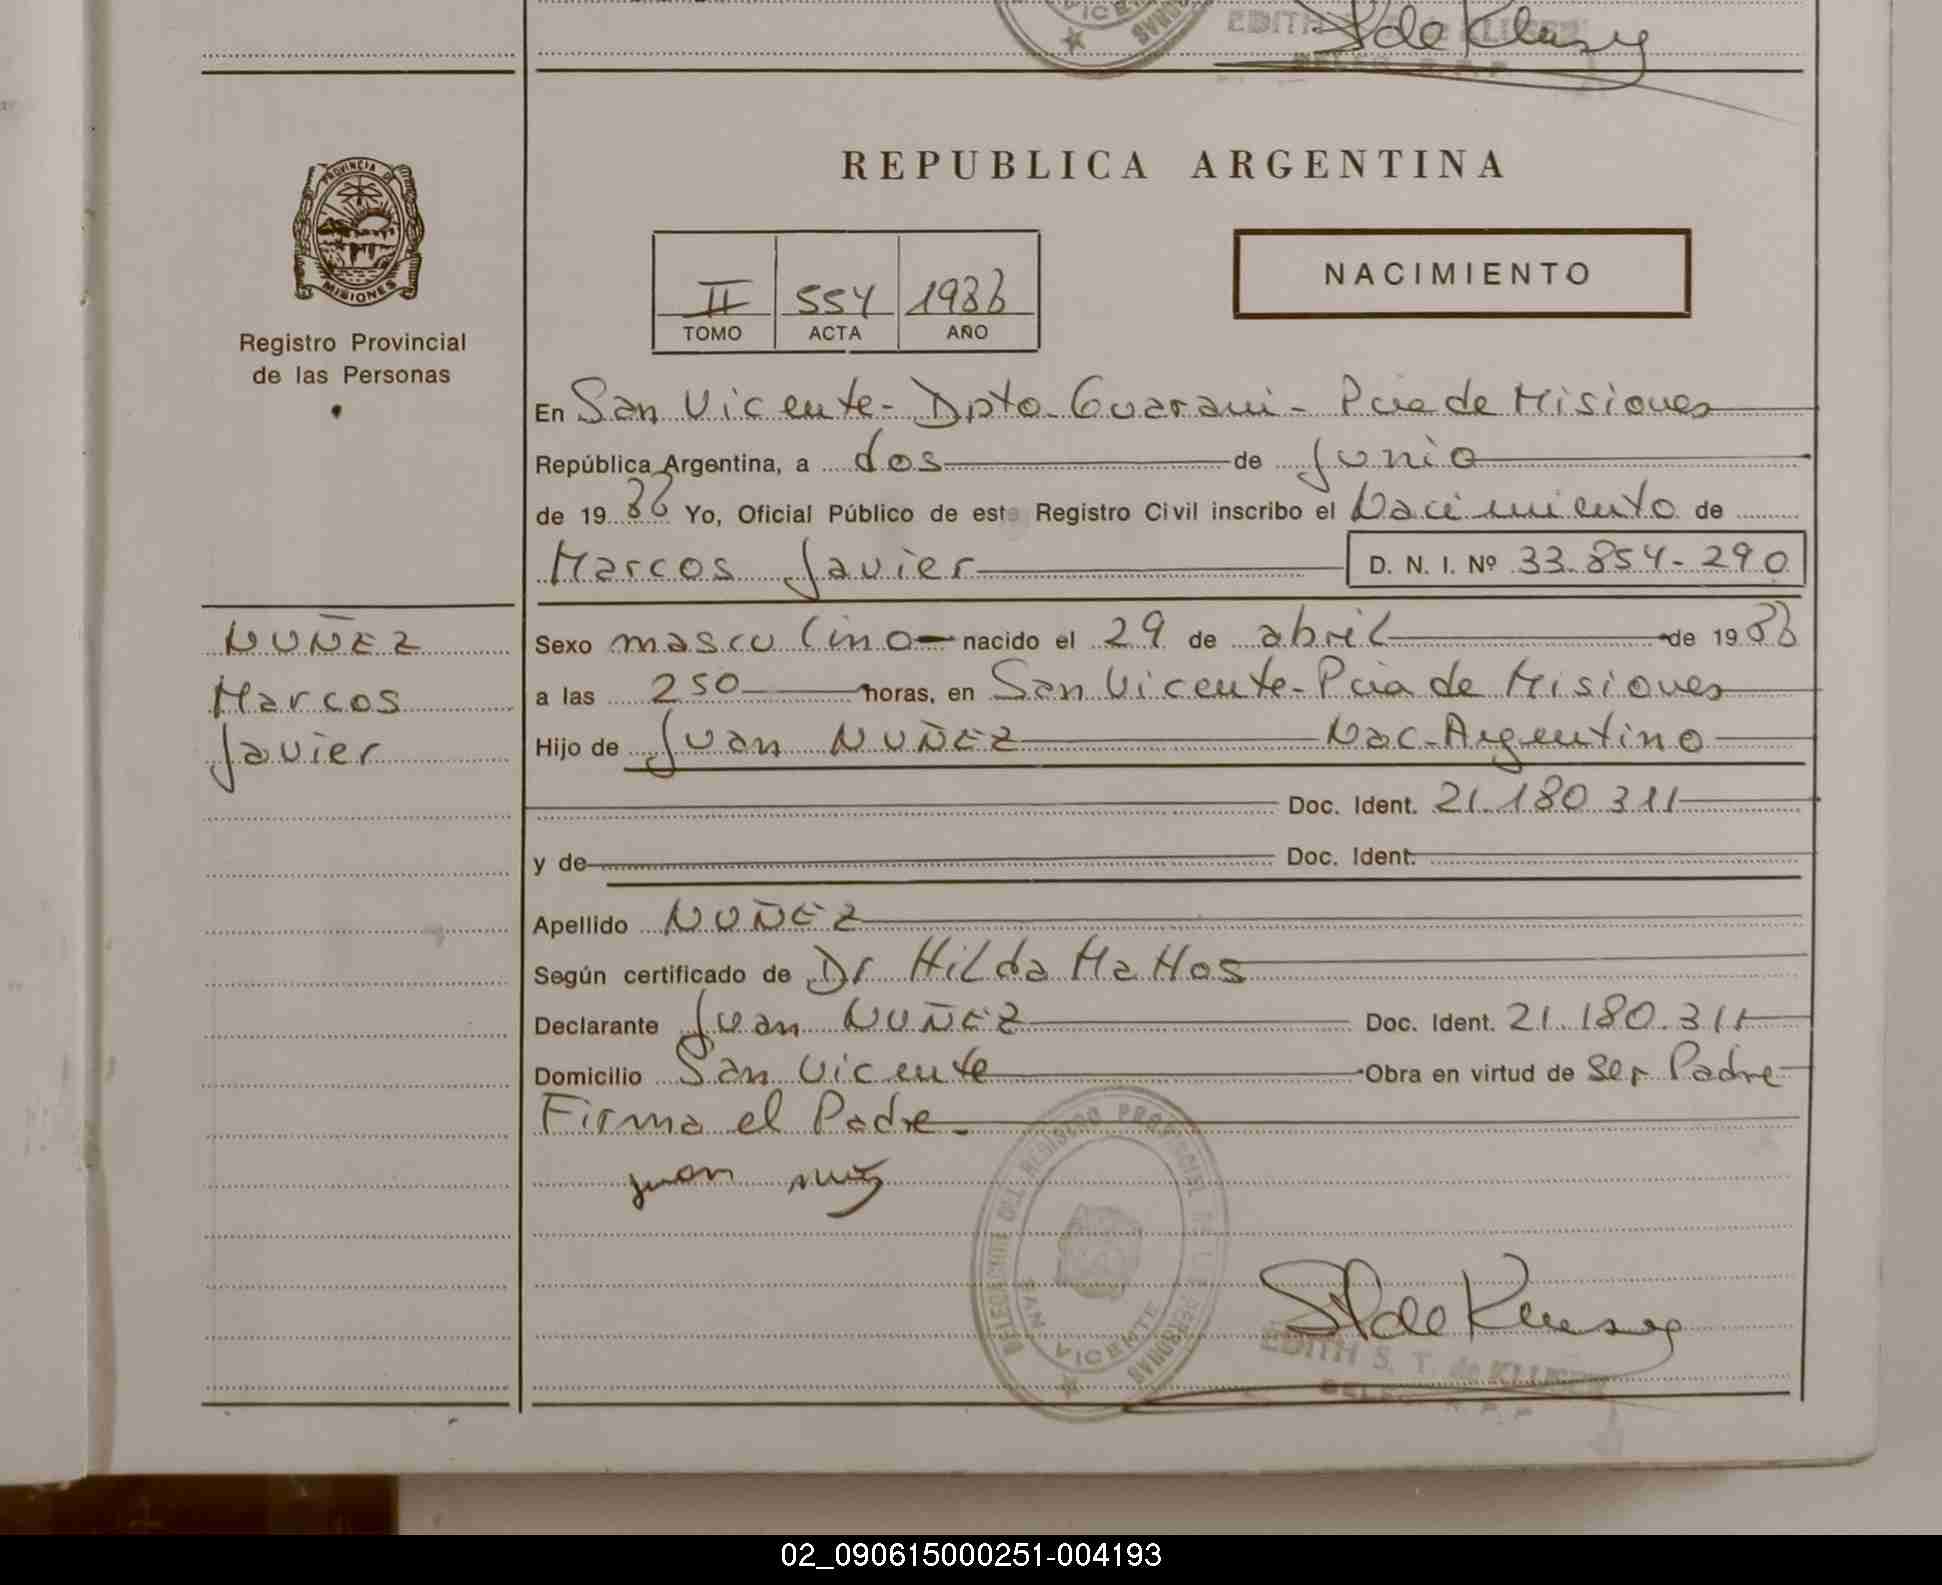 VICENTE
EDITH S. T. de KLUSEY
REPUBLICA ARGENTINA
PROVINCIA DE
MISIONES
Registro Provincial
de las Personas
II 554 1988
TOMO ACTA AÑO
NACIMIENTO
En San Vicente- Dpto Guarani- Pcia de Misiones
República Argentina, a dos de Junio
de 1988 Yo, Oficial Público de este Registro Civil inscribo el Nacimiento de
Marcos Javier D. N. I. Nº 33.854-290
NUÑEZ
Marcos
Javier
Sexo masculino nacido el 29 de abril de 1988
a las 250 horas, en San Vicente- Pcia de Misiones
Hijo de Juan NUÑEZ Nac-Argentino
Doc. Ident. 21.180.311
y de Doc. Ident.
Apellido NUÑEZ
Según certificado de Dr Hilda Mattos
Declarante Juan NUÑEZ Doc. Ident. 21.180.311
Domicilio San Vicente Obra en virtud de Ser Padre
Firma el Padre.
juan nuñez
DELEGACION DEL REGISTRO PROVINCIAL DE LAS PERSONAS
SAN VICENTE
EDITH S. T. de KLUSEY
02_090615000251-004193